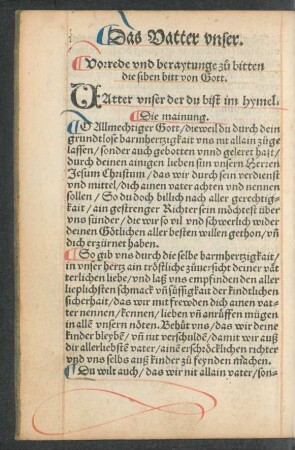 Das Vatter vnser.
Vorrede vnd beraytunge zů bitten
die siben bitt von Gott.
VAtter vnser der du bist im hymel.
Die mainung.
O Allmechtiger Gott/ diewel du durch dein
grundtlose barmhertzigkait vns nit allain zůge
lassen/ sonder auch gebotten vnnd geleret hast/
durch deinen ainigen lieben sun vnsern Herren
Jesum Christum/ das wir durch sein verdienst
vnd mittel/ dich ainen vater achten vnd nennen
sollen/ So du doch billich nach aller gerechtig-
kait/ ain gestrenger Richter sein möchtest über
vns sünder/ die wir so vil vnd schwerlich wider
deinen Götlichen aller besten willen gethon/ vñ
dich erzürnet haben.
So gib vns durch die selbe barmhertzigkait/
in vnser hertz ain tröstliche zůuersicht deiner vät
terlichen liebe/ vnd laß vns empfinden den aller
lieplichsten schmack vñ süssigkait der kindtlichen
sicherhait/ das wir mit frewden dich ainen vat-
ter nennen/ kennen/ lieben vñ anrüffen mügen
in allē vnsern nöten. Behüt vns/ das wir deine
kinder bleybē/ vñ nit verschuldē/ damit wir auß
dir allerliebstē vater/ ainē erschröcklichen richter
vnd vns selbs auß kinder zů feynden machen.
Du wilt auch/ das wir nit allain vater/ son-